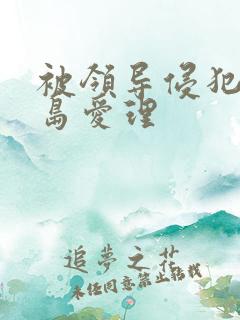 被领导侵犯
岛爱理
追梦之花
未经同意禁止转载